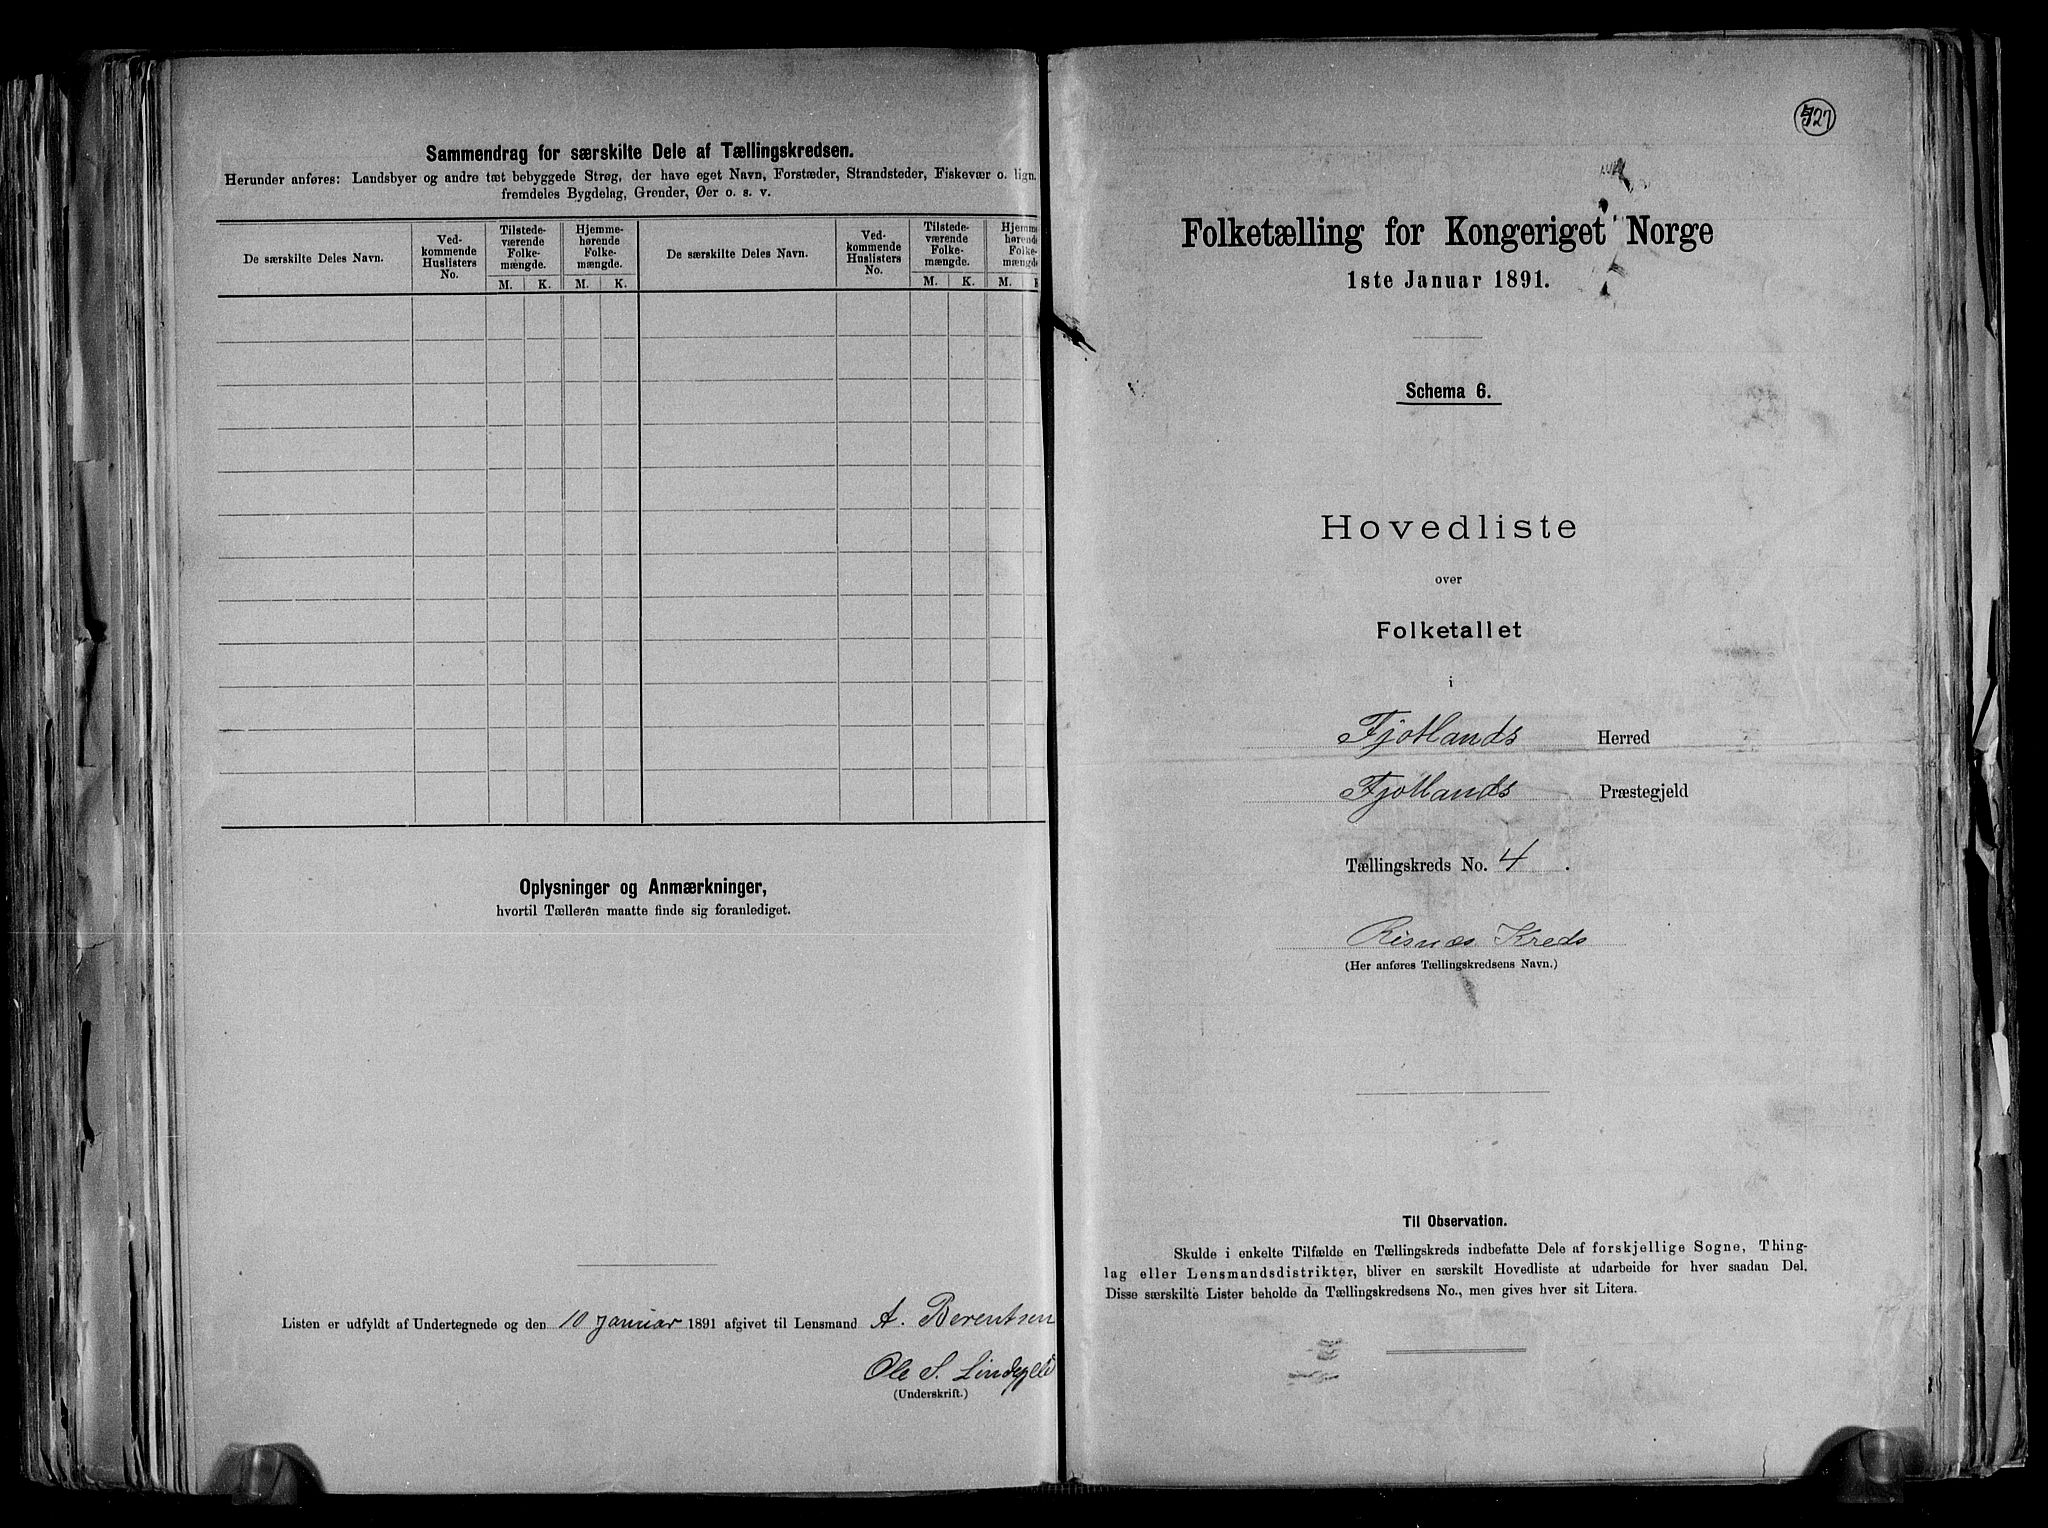 Sammendrag for særskilte Dele af Tællingskredsen.
Herunder anføres: Landsbyer og andre tæt bebyggede Strøg, der have eget Navn, Forstæder, Strandsteder, Fiskevær o. lign.
fremdeles Bygdelag, Grender, Øer o. s. v.
De særskilte Deles Navn.
Ved-
kommende
Huslisters
No.
Tilstede-
værende
Folke-
mængde.
Hjemme-
hørende
Folke-
mængde.
M. K. M. K.
De særskilte Deles Navn.
Ved-
kommende
Huslisters
No.
Tilstede-
værende
Folke-
mængde.
Hjemme-
hørende
Folke-
mængde
M. K. M. K
Oplysninger og Anmærkninger,
hvortil Tælleren maatte finde sig foranlediget.
Listen er udfyldt af Undertegnede og den 10 Januar 1891 afgivet til Lensmand A. Berentsen
Ole S. Lindefjeld
(Underskrift.)
727
Folketælling for Kongeriget Norge
1ste Januar 1891.
Schema 6.
Hovedliste
over
Folketallet
i
Fjotlands Herred
Fjotlands Præstegjeld
Tællingskreds No. 4.
Risnæs Kreds
(Her anføres Tællingskredsens Navn.)
Til Observation.
Skulde i enkelte Tilfælde en Tællingskreds indbefatte Dele af forskjellige Sogne, Thing-
lag eller Lensmandsdistrikter, bliver en særskilt Hovedliste at udarbeide for hver saadan Del.
Disse særskilte Lister beholde da Tællingskredsens No., men gives hver sit Litera.